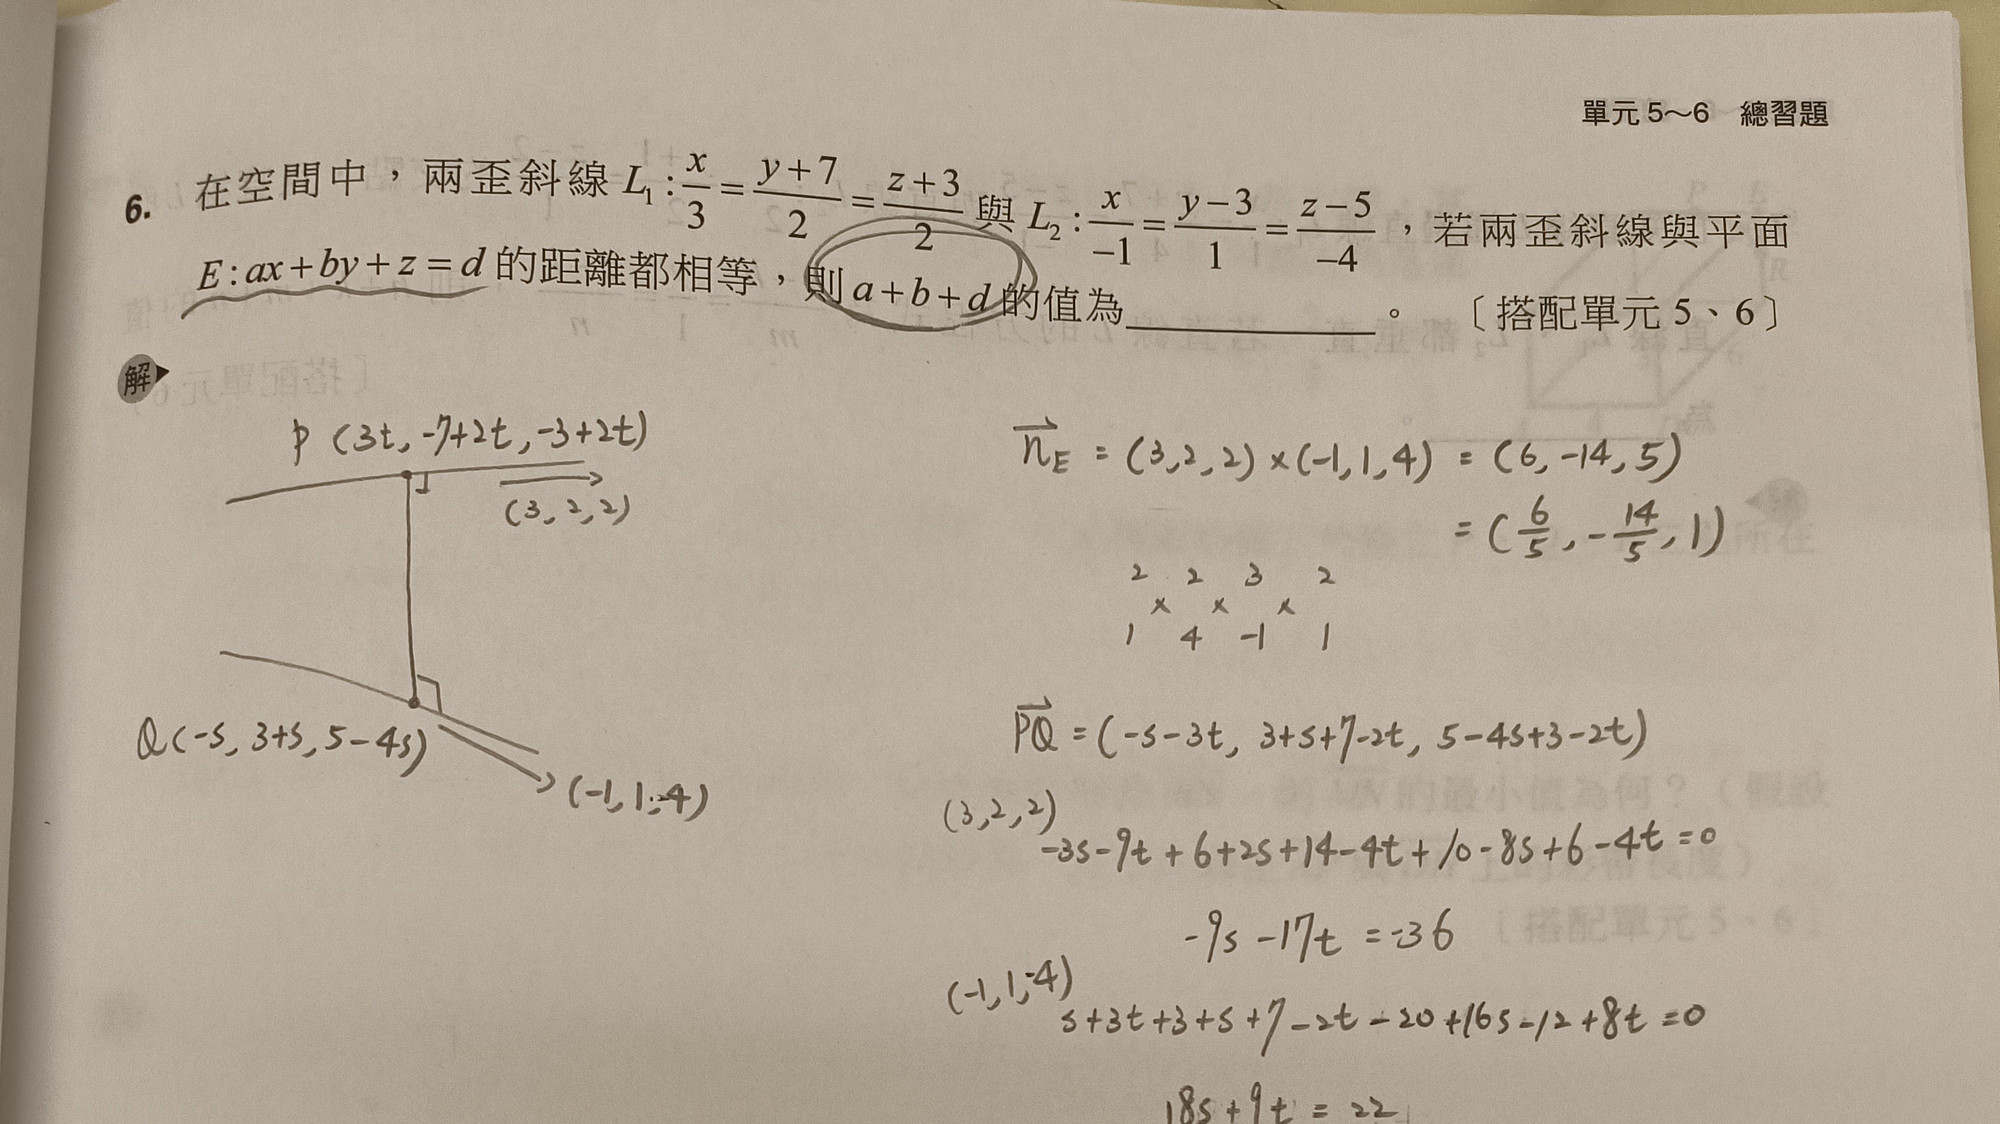 單元 5～6 總習題
6. 在空間中，兩歪斜線 L₁ : x/3 = (y+7)/2 = (z+3)/2 與 L₂ : x/-1 = (y-3)/1 = (z-5)/-4 ，若兩歪斜線與平面
E : ax + by + z = d 的距離都相等，則 a + b + d 的值為＿＿＿＿＿＿。 〔搭配單元 5、6〕
解
P (3t, -7+2t, -3+2t)
(3, 2, 2)
Q(-s, 3+s, 5-4s)
(-1, 1, -4)
n_E = (3,2,2)×(-1,1,4) = (6,-14,5)
= (6/5, -14/5, 1)
2 2 3 2
× × ×
1 4 -1 1
PQ = (-s-3t, 3+s+7-2t, 5-4s+3-2t)
(3,2,2)
-3s-9t+6+2s+14-4t+10-8s+6-4t=0
-9s-17t=-36
(-1,1,-4)
s+3t+3+s+7-2t-20+16s-12+8t=0
18s+9t=22